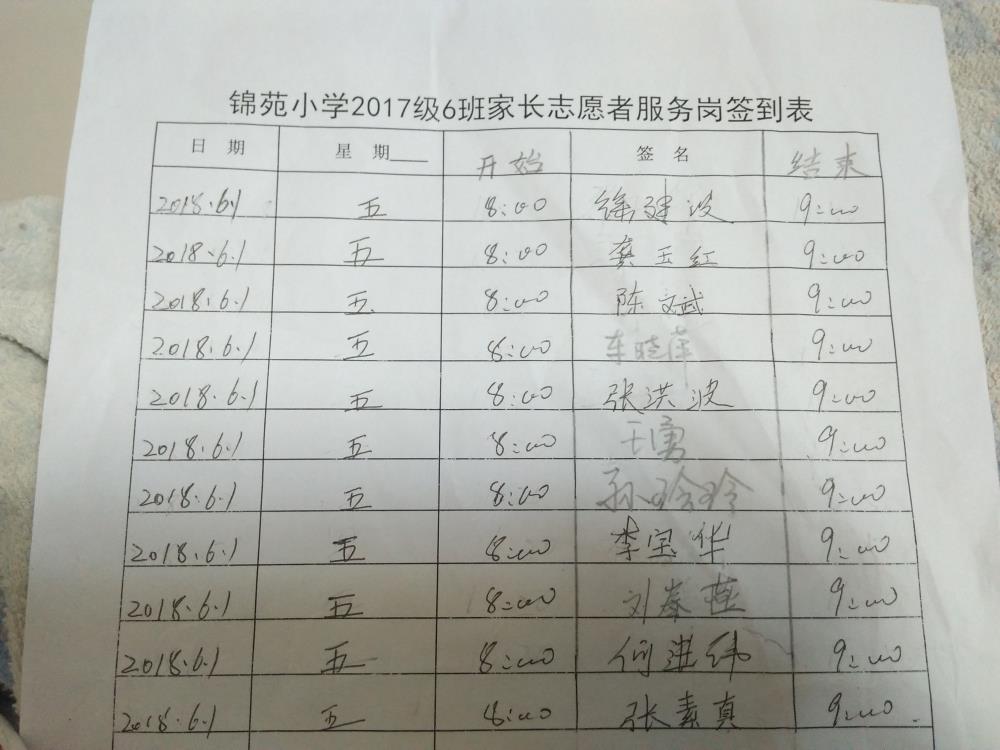 锦苑小学2017级6班家长志愿者服务岗签到表
日 期 星 期___ 开始 签 名 结束
2018.6.1 五 8:00 徐建波 9:00
2018.6.1 五 8:00 龚玉红 9:00
2018.6.1 五 8:00 陈文武 9:00
2018.6.1 五 8:00 车晓萍 9:00
2018.6.1 五 8:00 张洪波 9:00
2018.6.1 五 8:00 王勇 9:00
2018.6.1 五 8:00 孙玲玲 9:00
2018.6.1 五 8:00 李宝华 9:00
2018.6.1 五 8:00 刘春燕 9:00
2018.6.1 五 8:00 何进伟 9:00
2018.6.1 五 8:00 张素真 9:00